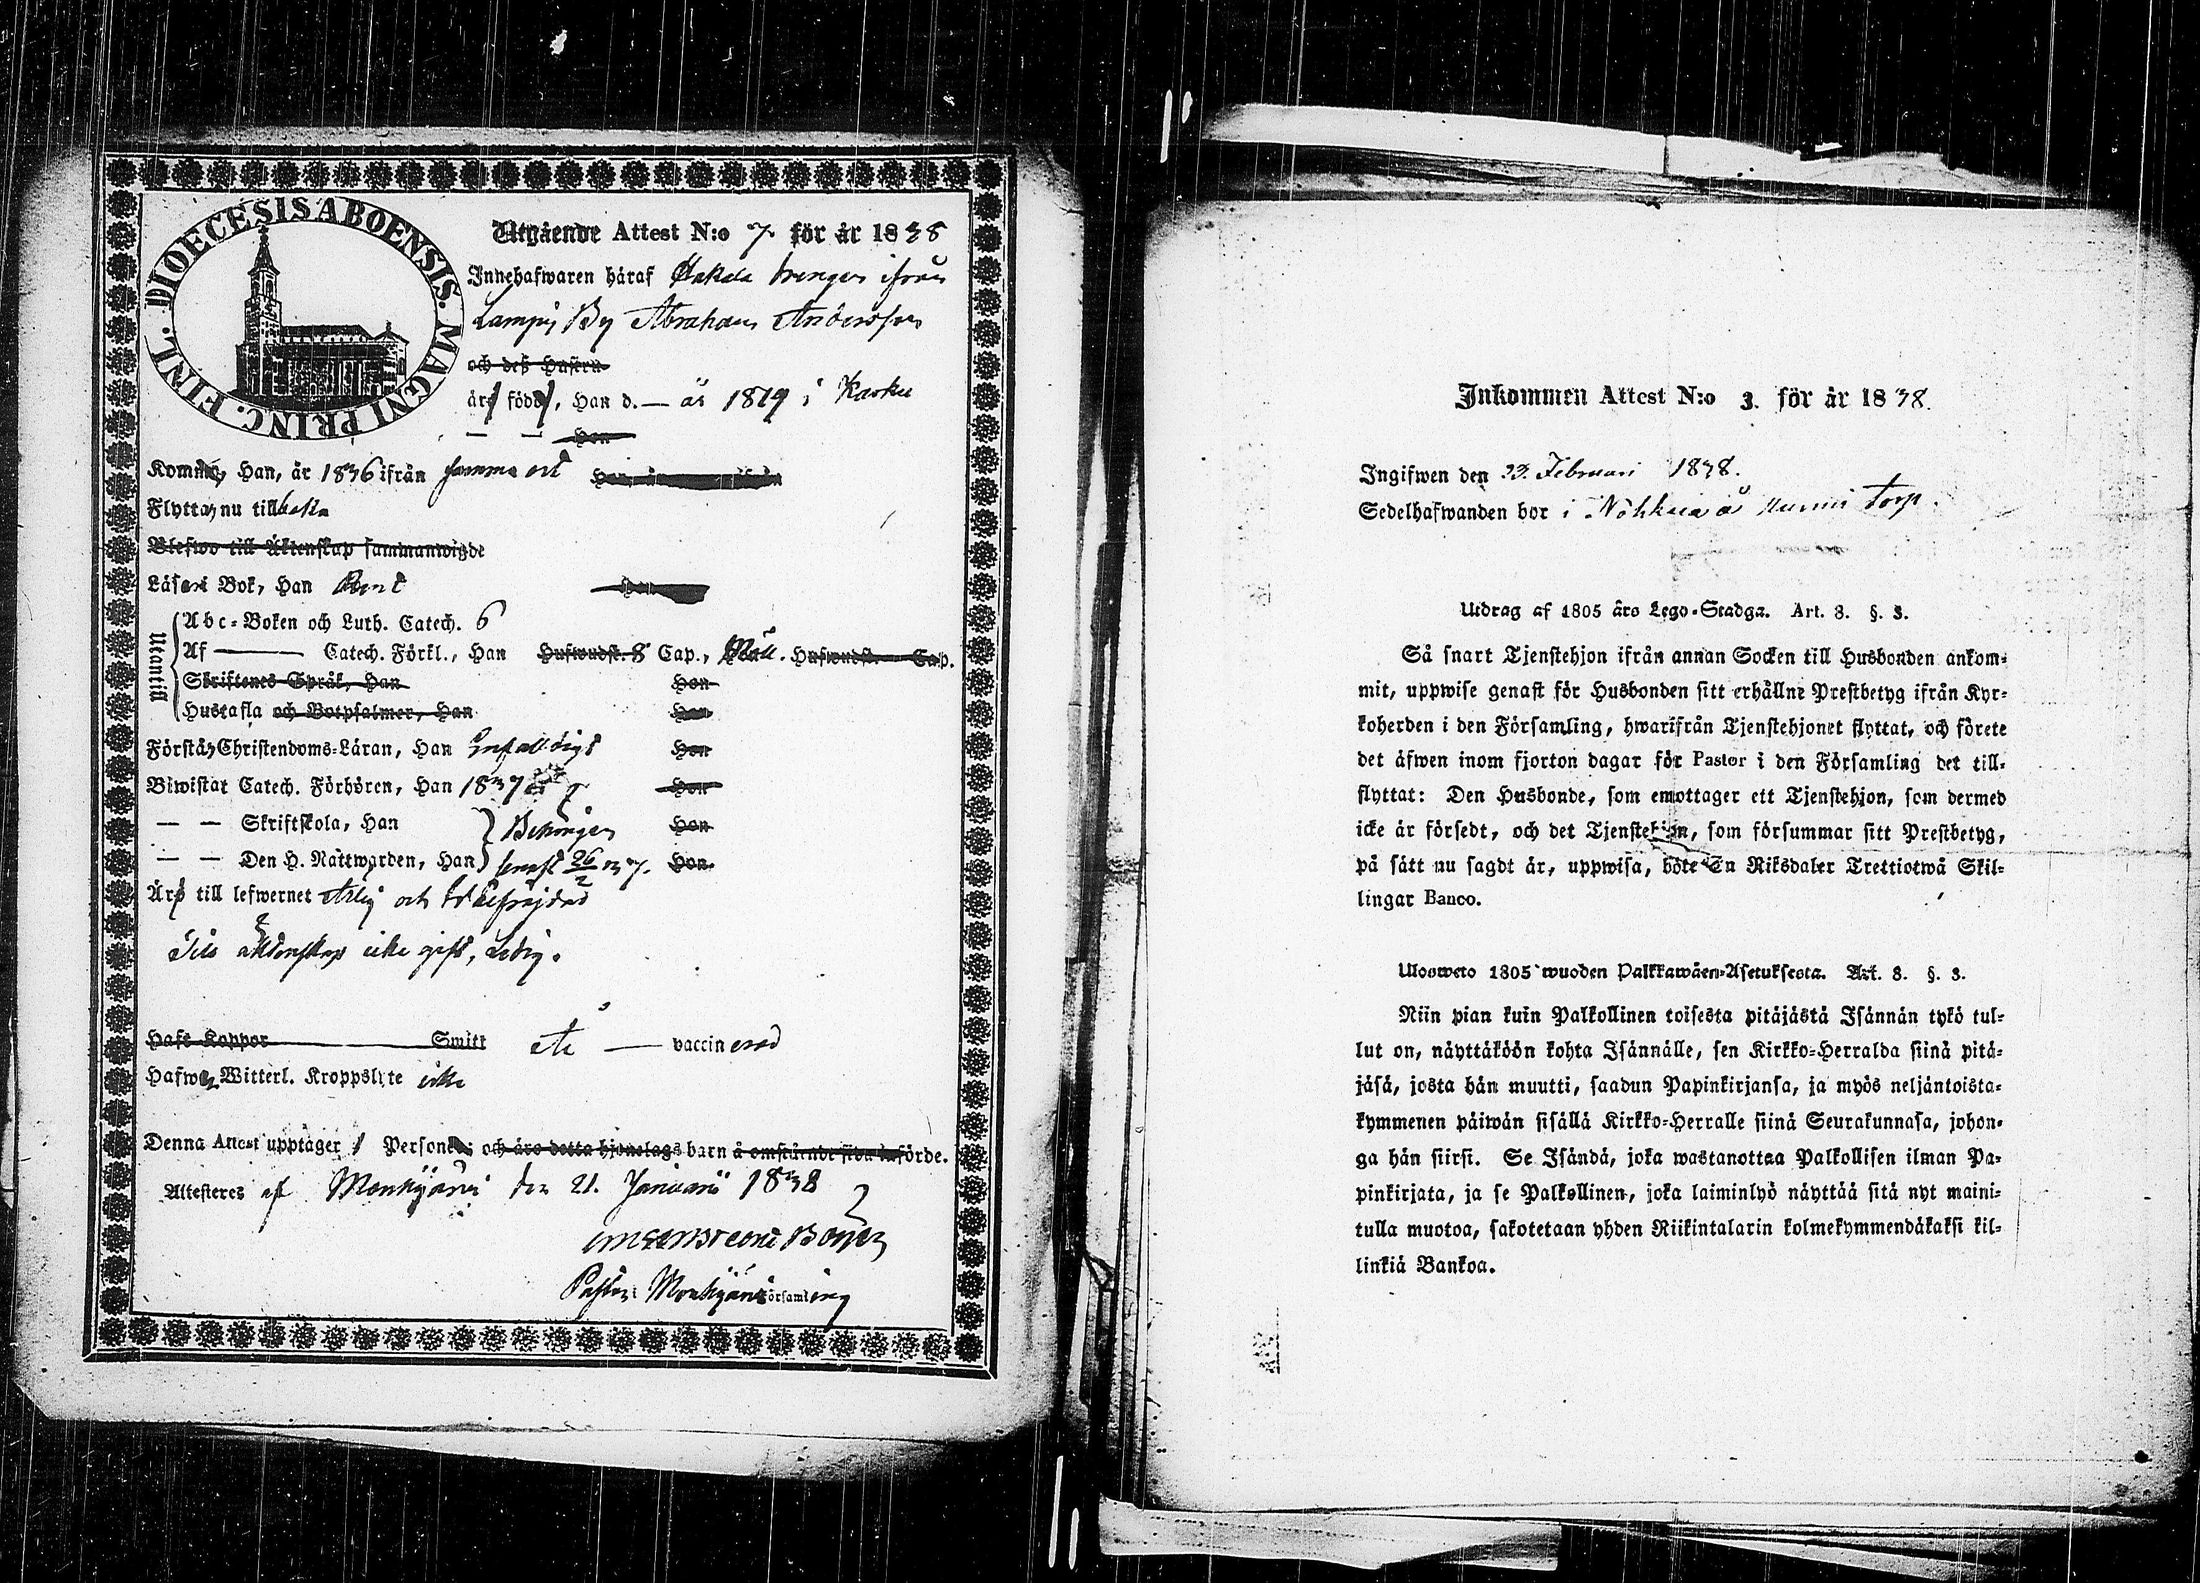 DIOECESIS ABOENSIS. MAGNI PRINC. FINL.
Utgående Attest N:o 7. för år 1838
Innehafwaren håraf drengen ifrån
By Abraham Andersson
och deß Hustru
år född, Han d. — år 1819 i Karku
— — Hon
Kommen, Han, år 1836 ifrån samma ort
Flyttar nu tillbaka
Blefwo till Äktenskap sammanwigde
Läser i Bok, Han Rent Hon
Utantill
Abc-Boken och Luth. Catech. 6
Af ——— Catech. Förkl., Han Huswudst. 8 Cap., Huswudst. — Cap.
Skriftenes Språk, Han Hon
Hustafla och Botpsalmer, Han Hon
Förstår Christendoms-Läran, Han Enfalldigt Hon
Biwistat Catech. Förhören, Han 1837 Hon
— — Skriftskola, Han Behörigen Hon
— — Den H. Nattwarden, Han senast 26/2 37. Hon
Är till lefwernet Ärlig och
Till äktenskap icke gift, Ledig.
Haft Koppor ——— Smitt ——— vaccinerad
Hafwer Witterl. Kroppslyte icke
Denna Attest upptager 1 Person och äro detta hjonelags barn å omstående sida införde.
Attesteres af Mouhijärvi den 21. Januarii 1838
Pastor i Mouhijärvi församling
Inkommen Attest N:o 3. för år 1838.
Ingifwen den 23. Februari 1838.
Sedelhafwanden bor i Nohkua å Nurmi Torp.
Utdrag af 1805 års Lego-Stadga. Art. 8. §. 3.
Så snart Tjenstehjon ifrån annan Socken till Husbonden ankom-
mit, uppwise genast för Husbonden sitt erhållne Prestbetyg ifrån Kyr-
koherden i den Församling, hwarifrån Tjenstehjonet flyttat, och förete
det äfwen inom fjorton dagar för Pastor i den Församling det till-
flyttat: Den Husbonde, som emottager ett Tjenstehjon, som dermed
icke är försedt, och det Tjenstehjon, som försummar sitt Prestbetyg,
på sätt nu sagdt är, uppwisa, böte En Riksdaler Trettiotwå Skil-
lingar Banco.
Ulosweto 1805 wuoden Palkkawäen-Asetuksesta. Art. 8. §. 3.
Niin pian kuin Palkollinen toisesta pitäjästä Isännän tykö tul-
lut on, näyttäköön kohta Isännälle, sen Kirkko-Herralda siinä pitä-
jäsä, josta hän muutti, saadun Papinkirjansa, ja myös neljäntoista-
kymmenen päiwän sisällä Kirkko-Herralle siinä Seurakunnasa, johon-
ga hän siirsi. Se Isändä, joka wastanottaa Palkollisen ilman Pa-
pinkirjata, ja se Palkollinen, joka laiminlyö näyttää sitä nyt maini-
tulla muotoa, sakotetaan yhden Riikintalarin kolmekymmendäkaksi kil-
linkiä Bankoa.